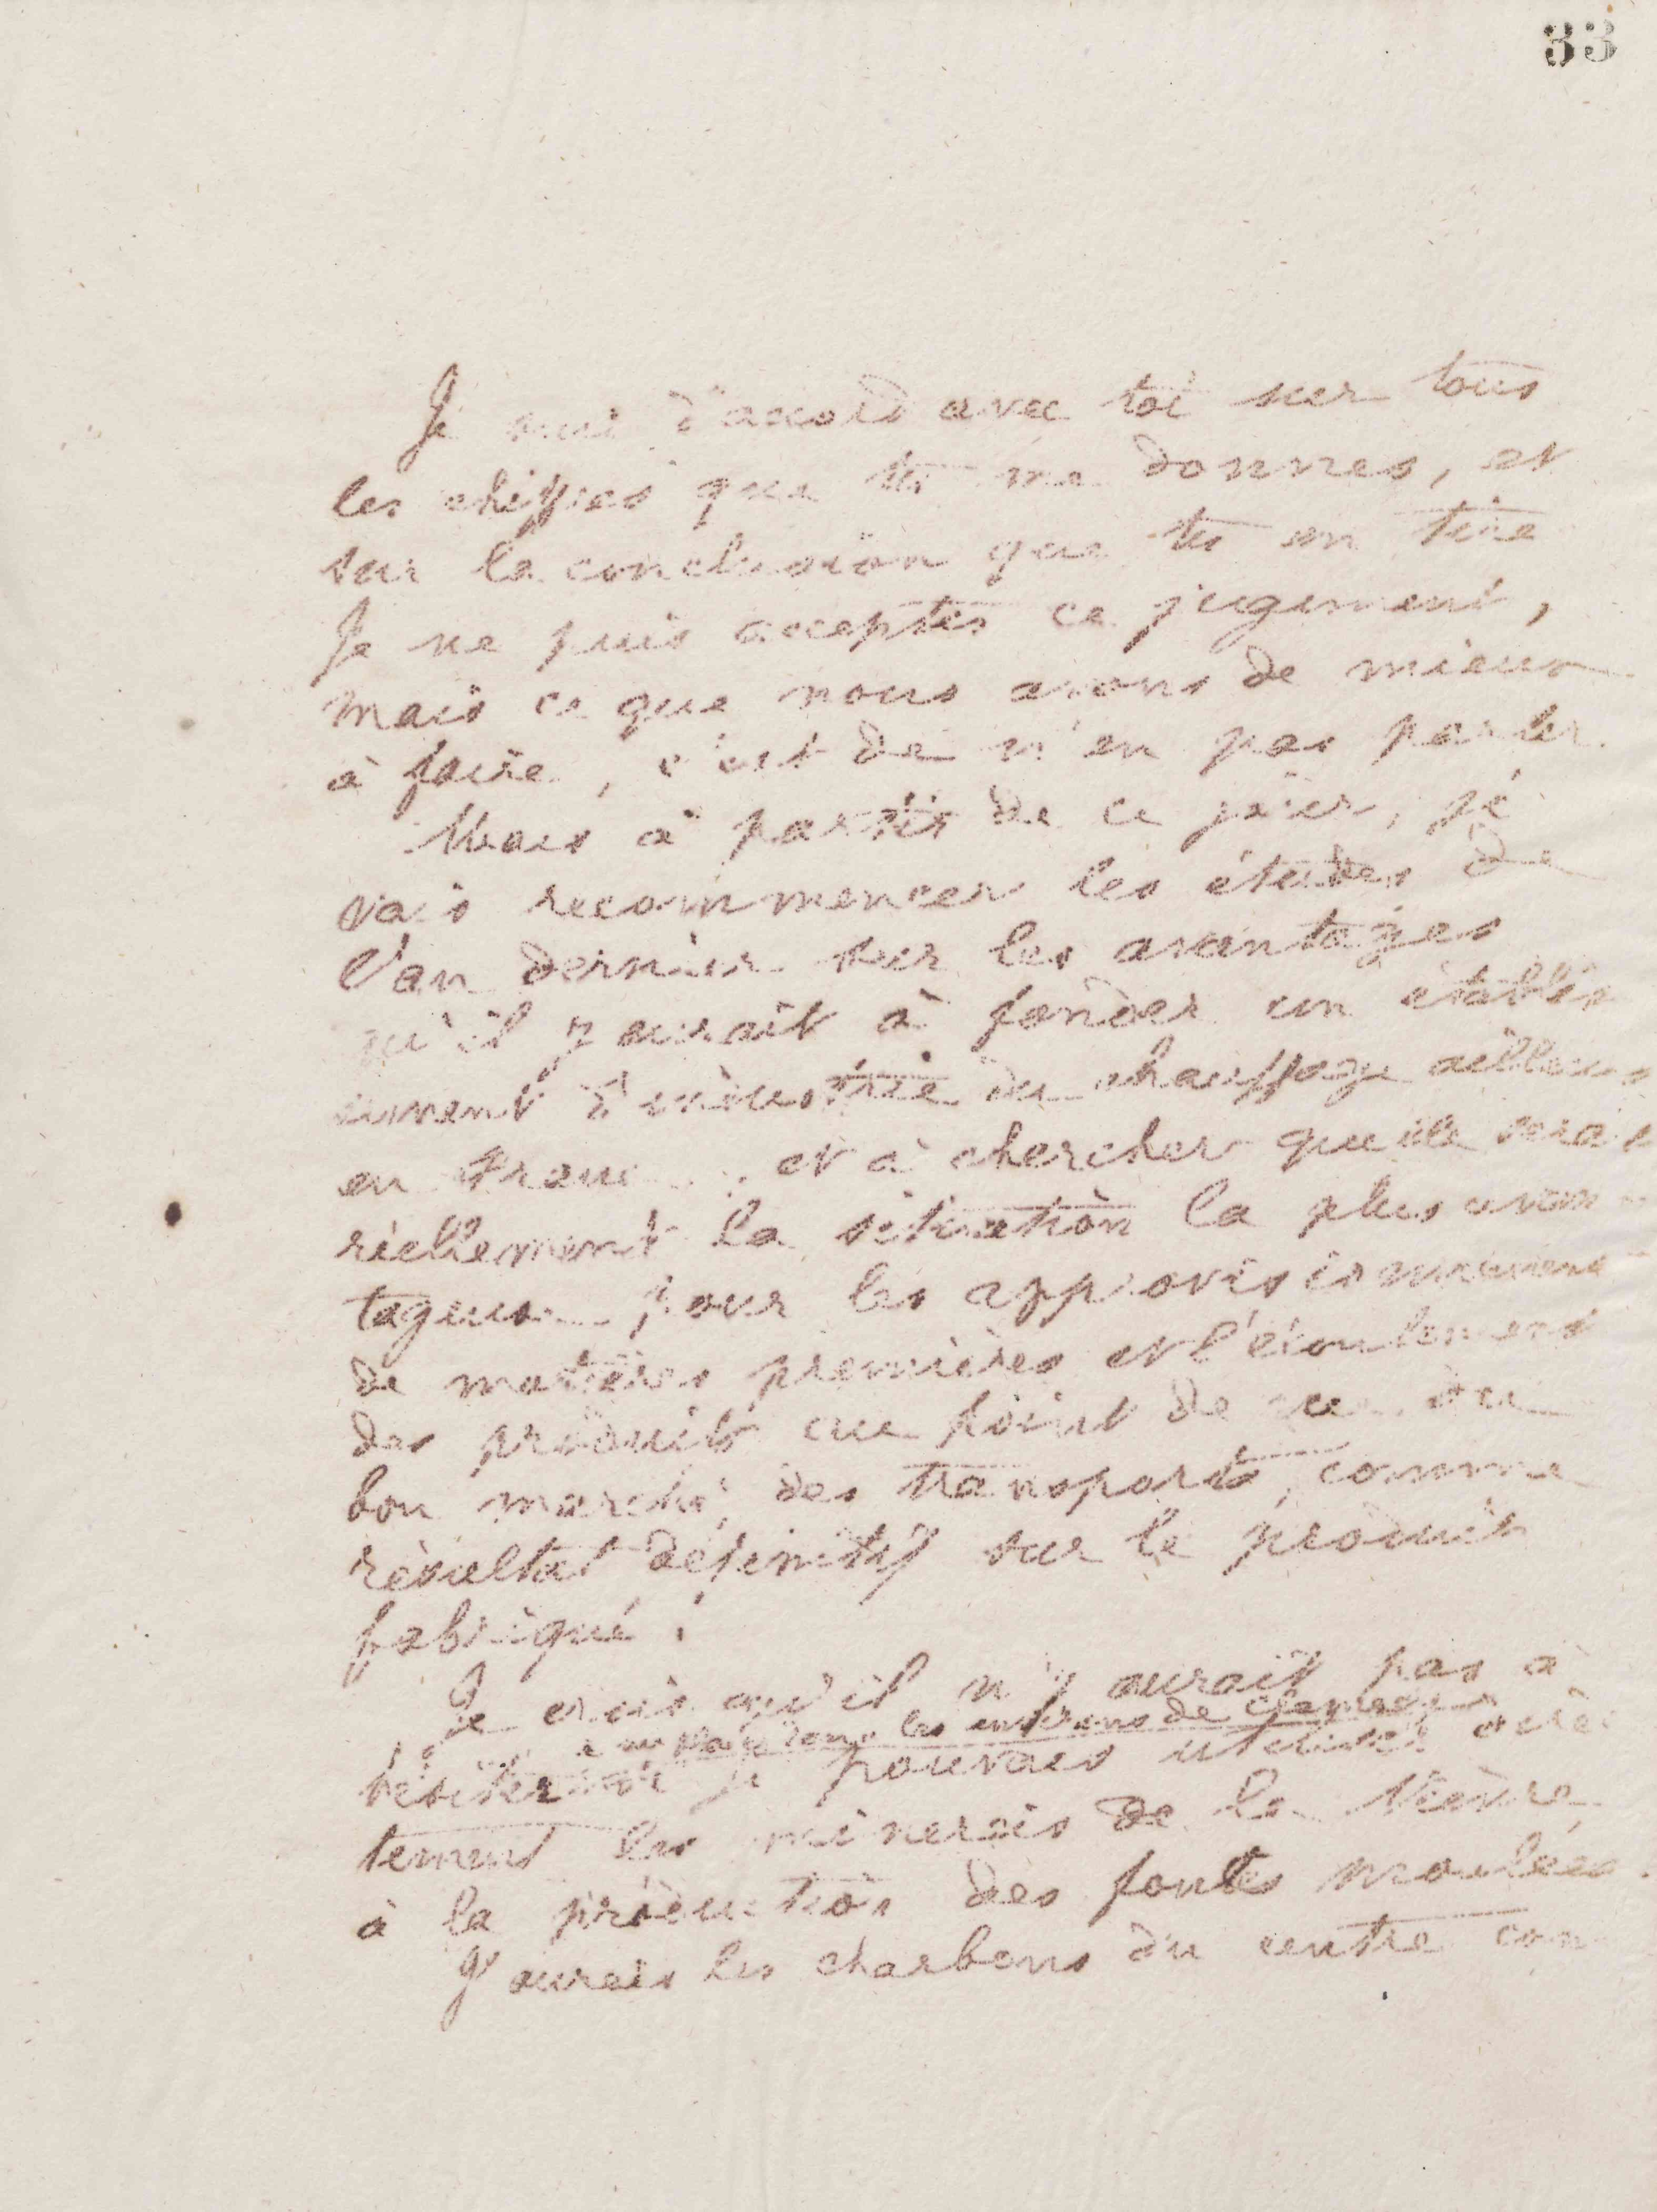 33
Je suis d'accord avec toi sur tous
les chiffres que tu me donnes, et
sur la conclusion que tu en tire
Je ne puis accepter ce jugement,
mais ce que nous avons de mieux
à faire, c'est de n'en pas parler.
Mais à partir de ce jour, je
vais recommencer les études de
l'an dernier sur les avantages
qu'il y aurait à fonder un établis
sement d'industrie du chauffage ailleurs
en France, et à chercher quelle serait
réellement la situation la plus avan
tageuse pour les approvisionnements
de matières premières et l'écoulement
des produits au point de vue du
bon marché des transports, comme
résultat définitif sur le produit
fabriqué.
Je crois qu'il n'y aurait pas à
dans les environs de Clamecy
hésiter si je pouvais utiliser direc
tement les minerais de la Nièvre
à la production des fontes moulées.
J'aurais les charbons du centre con